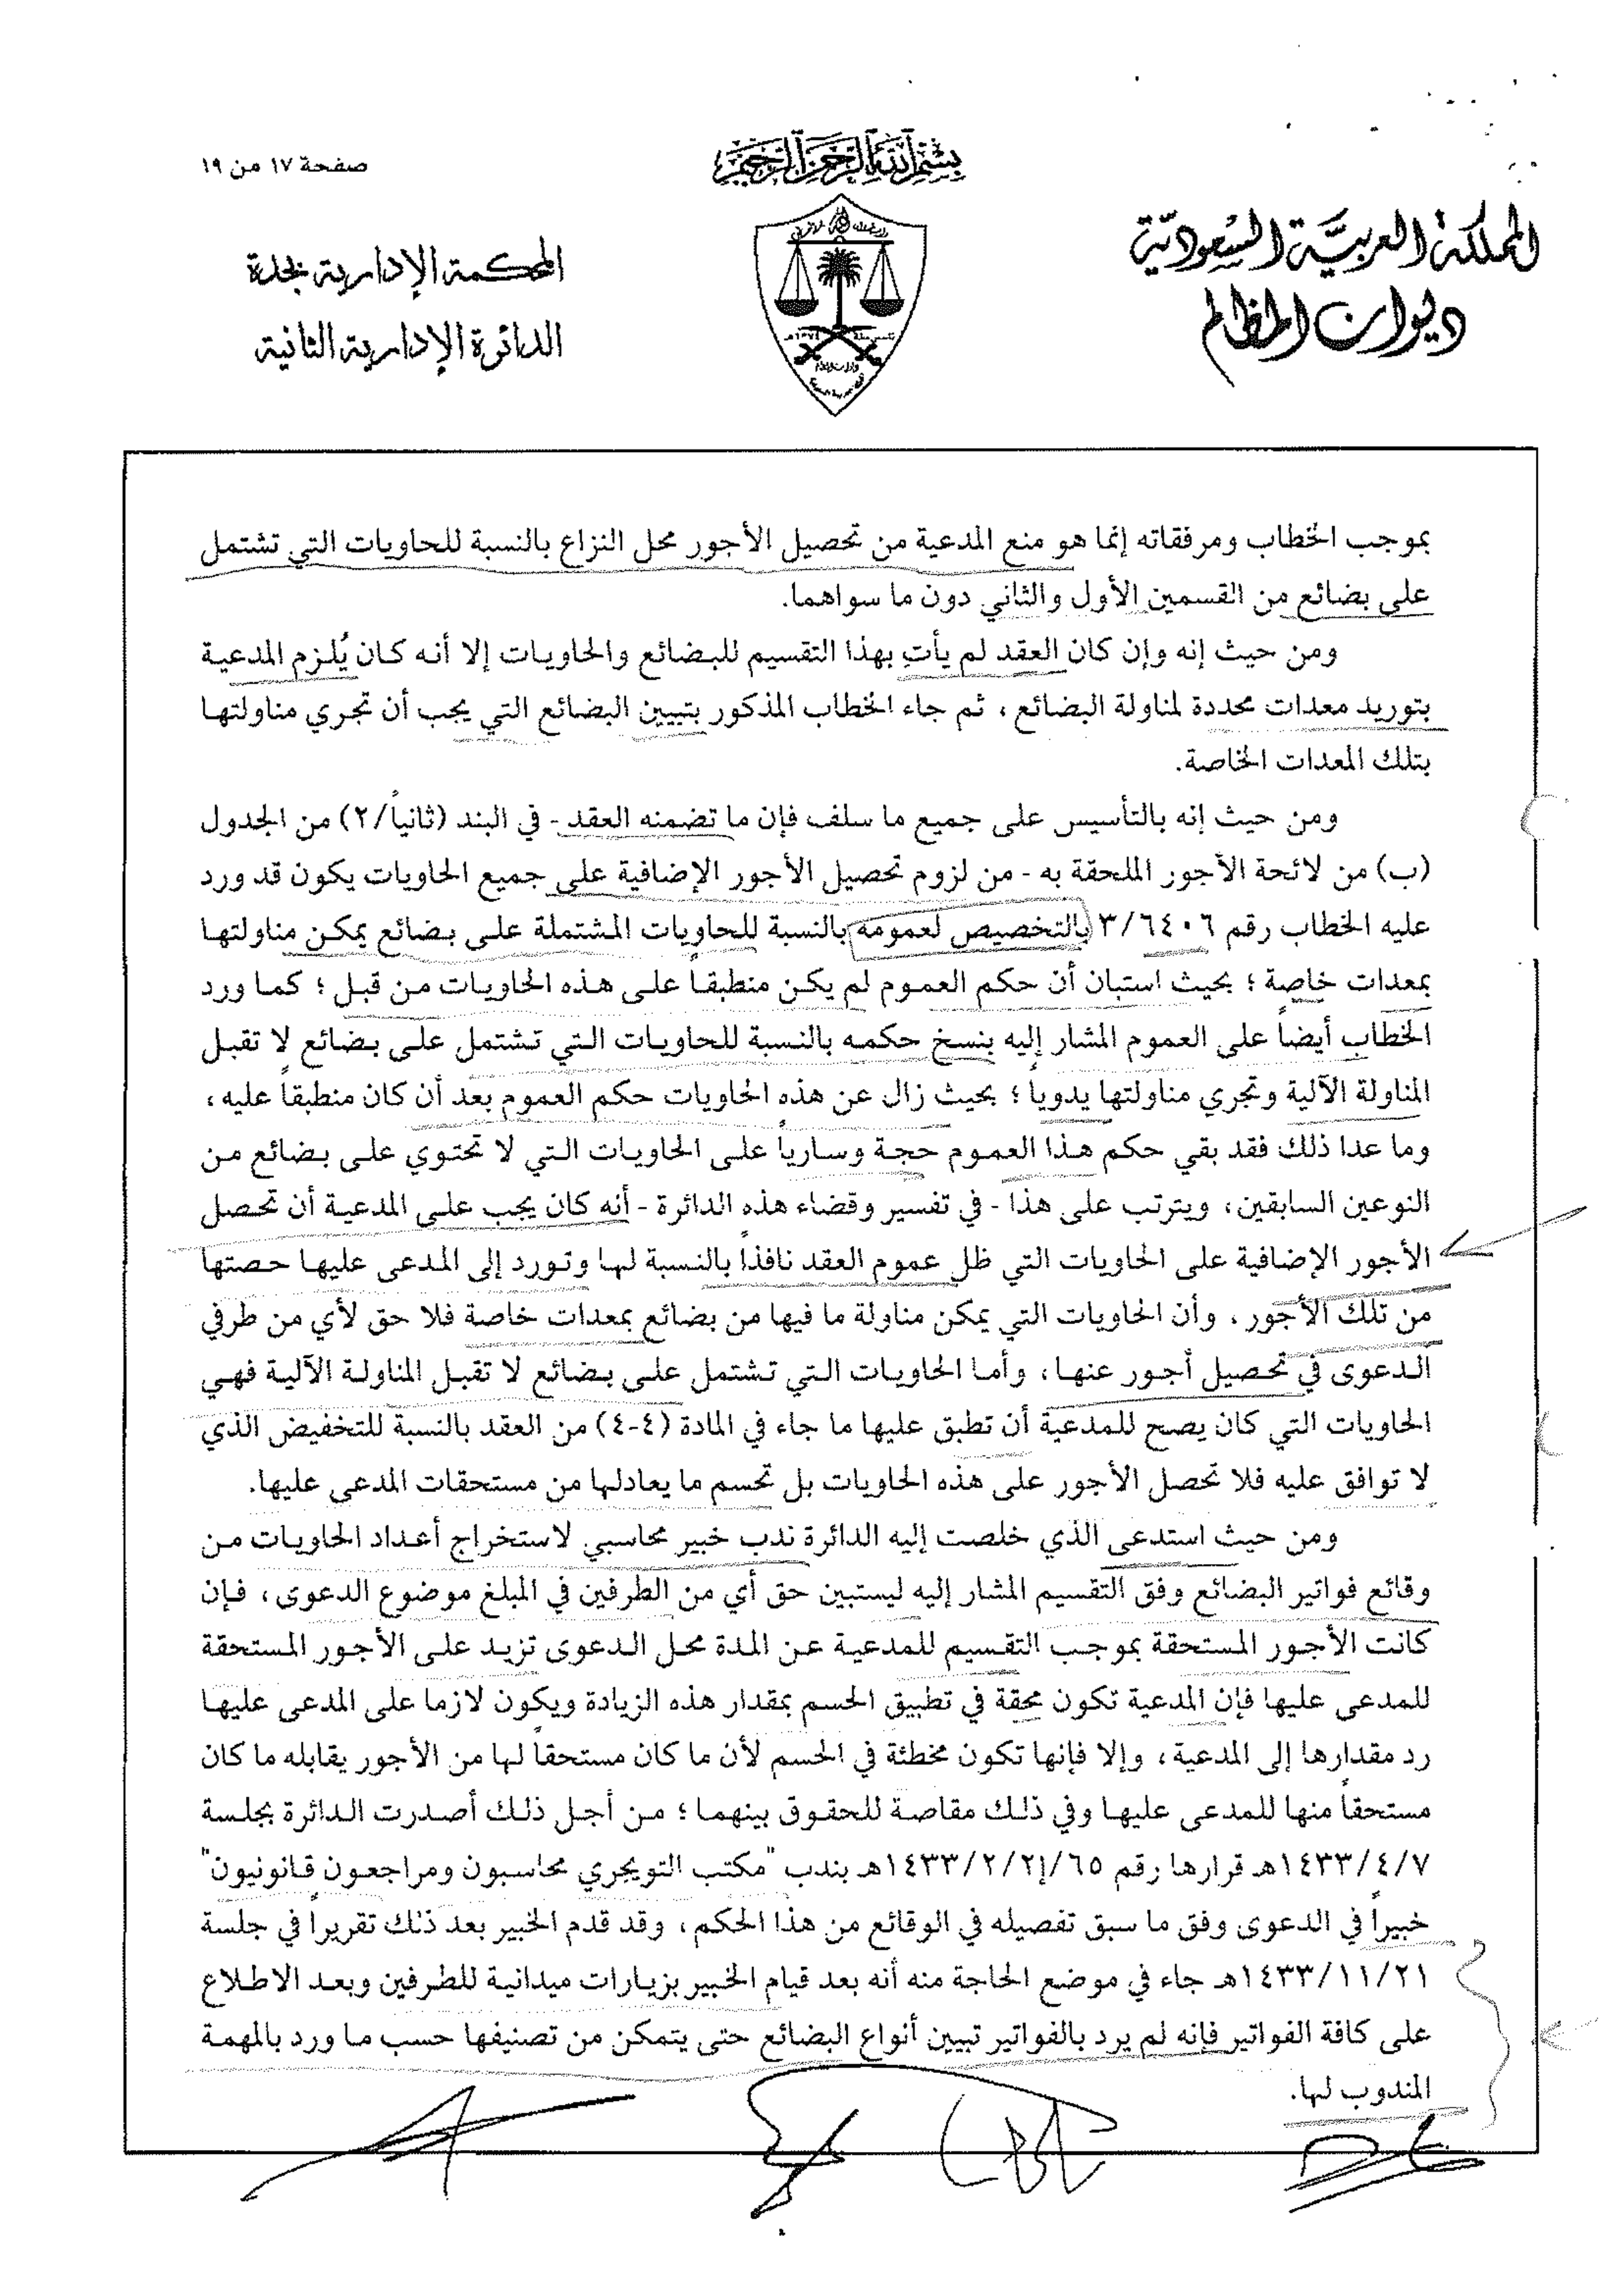 صفحة ١٧ من ١٩
بسم الله الرحمن الرحيم
المملكة العربية السعودية
ديوان المظالم
المحكمة الإدارية بجدة
الدائرة الإدارية الثانية
بموجب الخطاب ومرفقاته إنما هو منع المدعية من تحصيل الأجور محل النزاع بالنسبة للحاويات التي تشتمل
على بضائع من القسمين الأول والثاني دون ما سواهما.
ومن حيث إنه وإن كان العقد لم يأتِ بهذا التقسيم للبضائع والحاويات إلا أنه كان يُلزم المدعية
بتوريد معدات محددة لمناولة البضائع، ثم جاء الخطاب المذكور بتبيين البضائع التي يجب أن تجري مناولتها
بتلك المعدات الخاصة.
ومن حيث إنه بالتأسيس على جميع ما سلف فإن ما تضمنه العقد - في البند (ثانياً/٢) من الجدول
(ب) من لائحة الأجور الملحقة به - من لزوم تحصيل الأجور الإضافية على جميع الحاويات يكون قد ورد
عليه الخطاب رقم ٣/٦٤٠٦ بالتخصيص لعمومه بالنسبة للحاويات المشتملة على بضائع يمكن مناولتها
بمعدات خاصة؛ بحيث استبان أن حكم العموم لم يكن منطبقاً على هذه الحاويات من قبل؛ كما ورد
الخطاب أيضاً على العموم المشار إليه بنسخ حكمه بالنسبة للحاويات التي تشتمل على بضائع لا تقبل
المناولة الآلية وتجري مناولتها يدوياً؛ بحيث زال عن هذه الحاويات حكم العموم بعد أن كان منطبقاً عليه،
وما عدا ذلك فقد بقي حكم هذا العموم حجة وسارياً على الحاويات التي لا تحتوي على بضائع من
النوعين السابقين، ويترتب على هذا - في تفسير وقضاء هذه الدائرة - أنه كان يجب على المدعية أن تحصل
الأجور الإضافية على الحاويات التي ظل عموم العقد نافذاً بالنسبة لها وتورد إلى المدعى عليها حصتها
من تلك الأجور، وأن الحاويات التي يمكن مناولة ما فيها من بضائع بمعدات خاصة فلا حق لأي من طرفي
الدعوى في تحصيل أجور عنها، وأما الحاويات التي تشتمل على بضائع لا تقبل المناولة الآلية فهي
الحاويات التي كان يصح للمدعية أن تطبق عليها ما جاء في المادة (٤-٤) من العقد بالنسبة للتخفيض الذي
لا توافق عليه فلا تحصل الأجور على هذه الحاويات بل تحسم ما يعادلها من مستحقات المدعى عليها.
ومن حيث استدعى الذي خلصت إليه الدائرة ندب خبير محاسبي لاستخراج أعداد الحاويات من
وقائع فواتير البضائع وفق التقسيم المشار إليه ليستبين حق أي من الطرفين في المبلغ موضوع الدعوى، فإن
كانت الأجور المستحقة بموجب التقسيم للمدعية عن المدة محل الدعوى تزيد على الأجور المستحقة
للمدعى عليها فإن المدعية تكون محقة في تطبيق الحسم بمقدار هذه الزيادة ويكون لازما على المدعى عليها
رد مقدارها إلى المدعية، وإلا فإنها تكون مخطئة في الحسم لأن ما كان مستحقاً لها من الأجور يقابله ما كان
مستحقاً منها للمدعى عليها وفي ذلك مقاصة للحقوق بينهما؛ من أجل ذلك أصدرت الدائرة بجلسة
١٤٣٣/٤/٧هـ قرارها رقم ٦٥/إ/١٤٣٣/٢/٢هـ بندب "مكتب التويجري محاسبون ومراجعون قانونيون"
خبيراً في الدعوى وفق ما سبق تفصيله في الوقائع من هذا الحكم، وقد قدم الخبير بعد ذلك تقريراً في جلسة
١٤٣٣/١١/٢١هـ جاء في موضع الحاجة منه أنه بعد قيام الخبير بزيارات ميدانية للطرفين وبعد الاطلاع
على كافة الفواتير فإنه لم يرد بالفواتير تبيين أنواع البضائع حتى يتمكن من تصنيفها حسب ما ورد بالمهمة
المندوب لها.